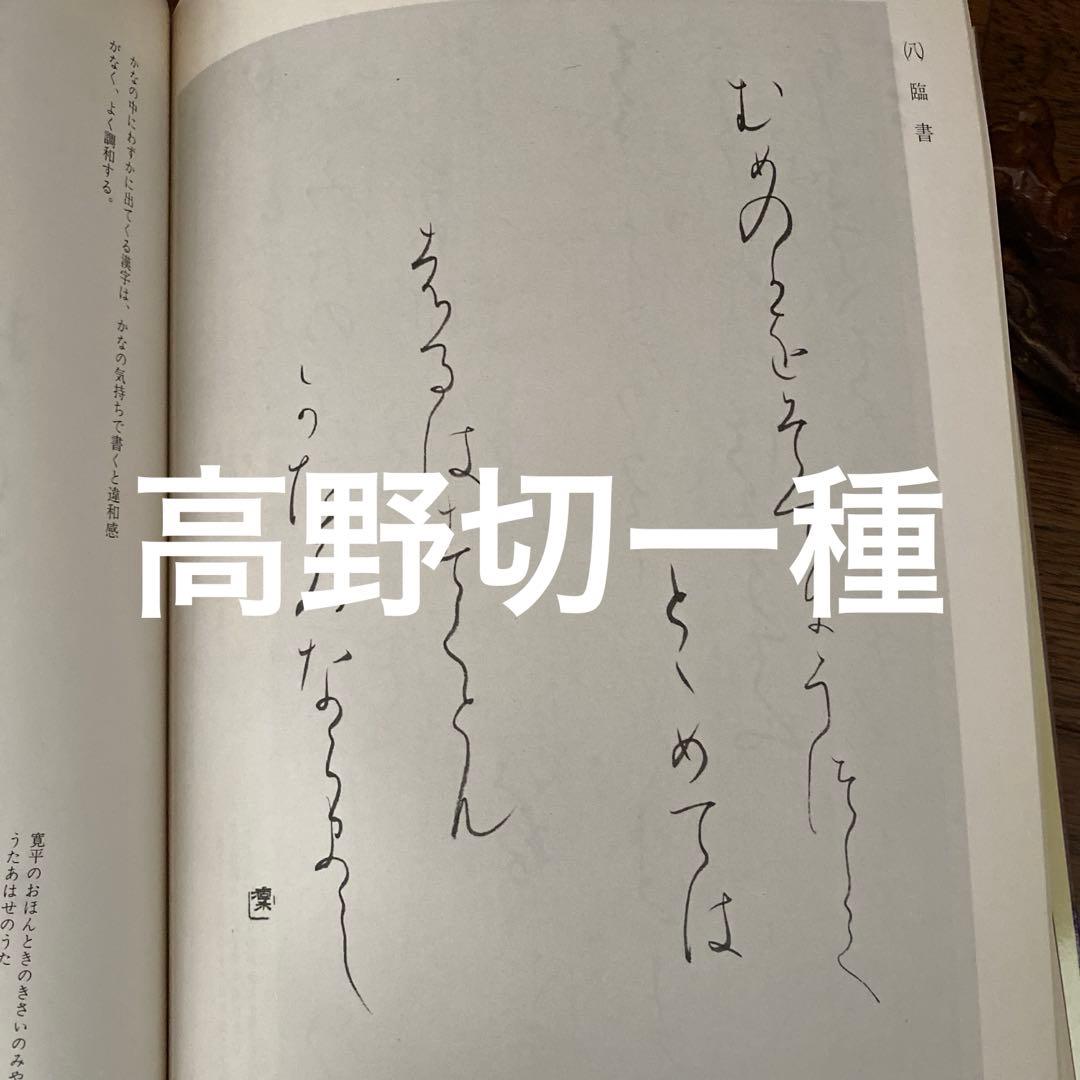 高野切一種
(八) 臨書
むめのかをそてにうつして
とゝめては
はるはすくとも
かたみならまし
かなの中にわずかに出てくる漢字は、かなの気持ちで書くと違和感
がなく、よく調和する。
寛平のおほんときのきさいのみや
うたあはせのうた